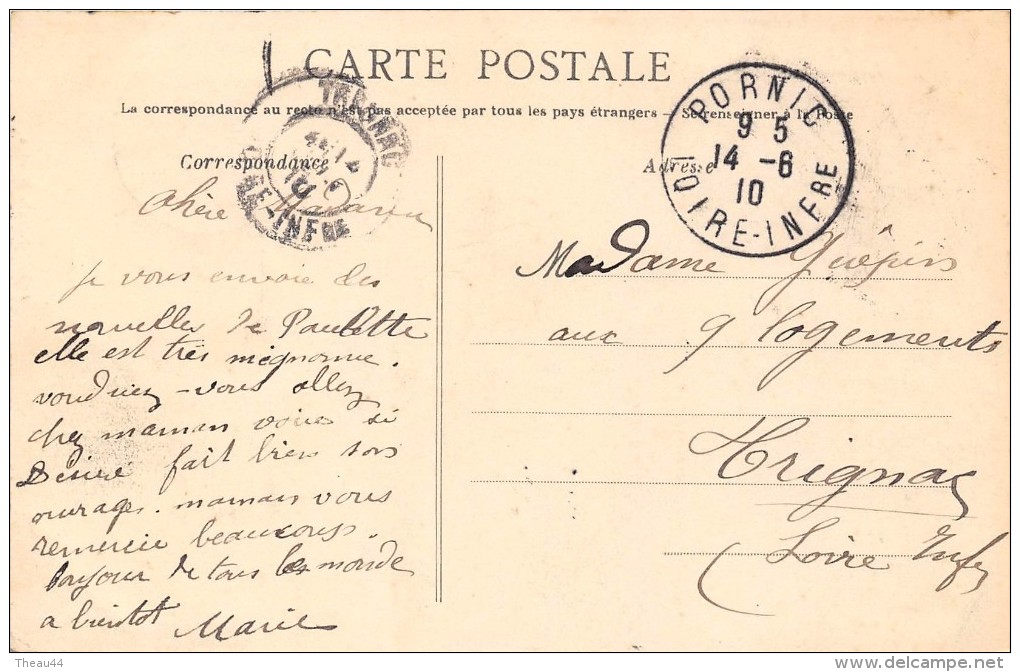 CARTE POSTALE
La correspondance au recto n'est pas acceptée par tous les pays étrangers - Se renseigner à la Poste
Correspondance
Adresse
PORNIC
9 5
14 -6
10
LOIRE-INFRE
TRIGNAC
LOIRE-INFRE
Chère Madame
Je vous envoie des
nouvelles de Paulette
elle est très mégnonne.
voudriez-vous allez
chez maman voire si
Désiré fait bien son
ouvrages. maman vous
remercie beaucoups.
bonjour de tous les monde
a bientot Marie
Madame Guépin
aux 9 logements
Trignac
(Loire Infre
Theau44
www.delcampe.net